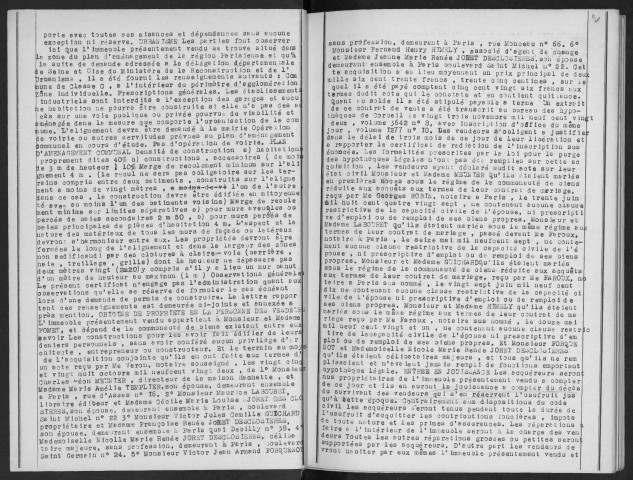 porte avec toutes ses aisances et dépendances sans aucune
exception ni réserve. URBANISME Les parties font observer
ici que l'immeuble présentement vendu se trouve situé dans
la zone du plan d'aménagement de la région Parisienne et qu'à
la suite de demande adressée à la délégation départementale
de Seine et Oise du Ministère de la Reconstruction et de l'
Urbanisme, il a été fourni les renseignements suivants :
mune de Classe C, à l'intérieur du périmètre d'agglomération
Zone individuelle. Prescriptions générales. Les établissements
industriels sont interdits à l'exception des garages et aucu
ne habitation ne pourra être construite si elle n'a pas des
cès sur une voie publique ou privée pourvue de viabilité et
aménagée dans la mesure que comporte l'urbanisation de la com
mune. L'alignement devra être demandé à la mairie Opération
de voirie ou autres servitudes prévues au plan d'aménagement
communal en cours d'étude. Pas d'opération de voirie. PLAN
D'AMENAGEMENT COMMUNAL Densité de construction a) habitations
proprement dites 40% b) constructions accessoires ( de moins
de 3 m de hauteur ) 10% Marge de reculement minimum sur l'ali
gnement 4 m. (Le recul ne sera pas obligatoire sur les ter-
rains compris entre deux bâtiments, construits sur l'aligne
ment à moins de vingt mètres, l'un de l'autre.
dans ce cas, la construction devra être édifiée en mitoyenne
té avec au moins l'un des bâtiments voisins) Marge de recule
ment minima sur limites séparatives a) pour murs aveugles ou
percés de baies secondaires 2 m 50, b) pour murs percés de
baies principales de pièces d'habitation 4 m. L'aspect et la
nature des matériaux de tous les murs de façade ou latéraux
devront s'harmoniser entre eux. Les propriétés devront être
fermées le long de l'alignement et dans la largeur des zones
non aedificandi par des clotures à claire-voie (barrière,
haie, treillage, grille) dont la hauteur ne dépassera pas
deux mètres vingt (2m20) compris s'il y a lieu un mur bahut
d'un mètre de hauteur au maximum (1 m) Observations générales
Le présent certificat n'engage pas l'administration quant aux
observations qu'elle se réserve de formuler le cas échéant
lors d'une demande de permis de construire. Le lettre rappor
tant ces renseignements est demeurée ci-jointe et annexée a
près mention. ORIGINE DE PROPRIETE EN LA PERSONNE DES VENDEURS
L'immeuble présentement vendu appartient à Monsieur et Madame
POMEY, et dépend de la communauté de biens existant entre eux
savoir Les constructions pour les avoir fait édifier de leurs
deniers personnels, sans avoir conféré aucun privilège d'ar
chitecte, entrepreneur ou constructeur. Et le terrain au moyen
de l'acquisition conjointe qu'ils en ont faite aux termes d'
un acte reçu par Me Feron, notaire soussigné, les vingt cinq
et vingt huit octobre mil neuf cent vingt deux, de 1° Monsieur
Charles Léon MEUNIER, directeur de la maison Hachette, et
Madame Marie Amélie TEMPLIER, son épouse, demeurant ensemble
à Paris, rue d'Assas n° 76. 2° Monsieur Maurice LABOURET,
libraire éditeur et Madame Cécile Marie Louise JORET DES CLO
SIERES, son épouse, demeurant ensemble à Paris, boulevard
Saint Michel n° 22 3° Monsieur Victor Jules Camille GUICHARD
propriétaire et Madame Françoise Renée JORET DESCLOSIERES,
son épouse, demeurant ensemble à Paris Quai Debilly n° 38. 4°
Mademoiselle Nicolle Marie Renée JORET DESCLOSIERES, céliba
taire majeure, sans profession, demeurant à Paris, boulevard
Saint Germain n° 24. 5° Monsieur Victor Jean Armand FORQUENOT
sans profession, demeurant à Paris, rue Monceau n° 66. 6°
Monsieur Fernand Henry HEMELY, associé d'agent de change
et Madame Jeanne Marie Renée JORET DESCLOSIERES, son épouse
demeurant ensemble à Paris boulevard Saint Michel n° 22. Cet
te acquisition a eu lieu moyennant un prix principal de deux
mille six cent trente francs, trente cinq centimes, sur le
quel il a été payé comptant cinq cent vingt six francs aux
termes dudit acte qui le constate et en contient quittance.
Quant au solde il a été stipulé payable à terme Un extrait
de ce contrat de vente a été transcrit au bureau des hypo-
thèques de Corbeil le vingt trois novembre mil neuf cent vingt
deux, volume 3542 n° 8, avec inscription d'office du même
jour, volume 1877 n° 70. Les vendeurs s'obligent à justifier
dans le délai de trois mois de ce jour de leur libération et
à rapporter le certificat de radiation de l'inscription sus
énoncée. Les formalités prescrites par la loi pour la purge
des hypothèques légales n'ont pas été remplies sur cette ac
quisition, Les vendeurs ayant déclaré audit acte sur leur
état civil Monsieur et Madame MEUNIER qu'ils étaient mariés
en premières noces sous le régime de la communauté de biens
réduite aux acquêts aux termes de leur contrat de mariage,
reçu par Me Georges ROBIN, notaire à Paris, le trente juin
mil huit cent quatre vingt sept, ne contenant aucune clause
restrictive de la capacité civile de l'épouse, ni prescripti
ve d'emploi ou de remploi de ses biens propres. Monsieur et
Madame LABOURET Qu'ils étaient mariés sous le même régime aux
termes de leur contrat de mariage, passé devant Me Faroux,
notaire à Paris, le seize mai mil neuf cent sept, ne conte-
nant aucune clause restrictive de la capacité civile de l'é
pouse, ni prescriptive d'emploi ou de remploi de ses biens
propres, Monsieur et Madame GUICHARD Qu'ils étaient mariés
sous le régime de la communauté de biens réduite aux acquêts
aux termes de leur contrat de mariage, reçu par Me FAROUX, no
taire à Paris sus nommé, le vingt sept juin mil neuf cent
ne contenant aucune clause restrictive de la capacité ci
vile de l'épouse ni prescriptive d'emploi ou de remploi de
ses biens propres. Monsieur et Madame HEMELY qu'ils étaient
mariés sous le même régime aux termes de leur contrat de ma
riage reçu par Me Faroux, notaire sus nommé, le douze mai
mil neuf cent vingt et un, ne contenant aucune clause restric
tive de la capacité civile de l'épouse ni prescriptive d'em
ploi ou de remploi de ses biens propres. Et Monsieur FORQUE
NOT et Mademoiselle Nicole Marie Renée JORET DESCLOSIERES
qu'ils étaient célibataires majeurs, et tous qu'ils ne rem
plissaient et n'avaient jamais rempli de fonctions emportant
hypothèque légale. ENTREE EN JOUISSANCE Les acquéreurs seront
nus propriétaires de l'immeuble présentement vendu à compter
de ce jour et ils en auront la jouissance à compter du décès
du survivant des vendeurs qui s'en réservent l'usufruit jus
qu'à cette époque. Contrairement aux dispositions du code
civil les acquéreurs seront tenus pendant toute la durée de
l'usufruit d'acquitter les contributions foncières, impôts
de toute nature et les primes d'assurances. Les réparations à
faire à l'intérieur de l'immeuble seront à la charge des ven
deurs Toutes les autres réparations grosses ou petites seront
supportées par les acquéreurs. D'autre part les vendeurs de
vront habiter par eux mêmes l'immeuble présentement vendu et